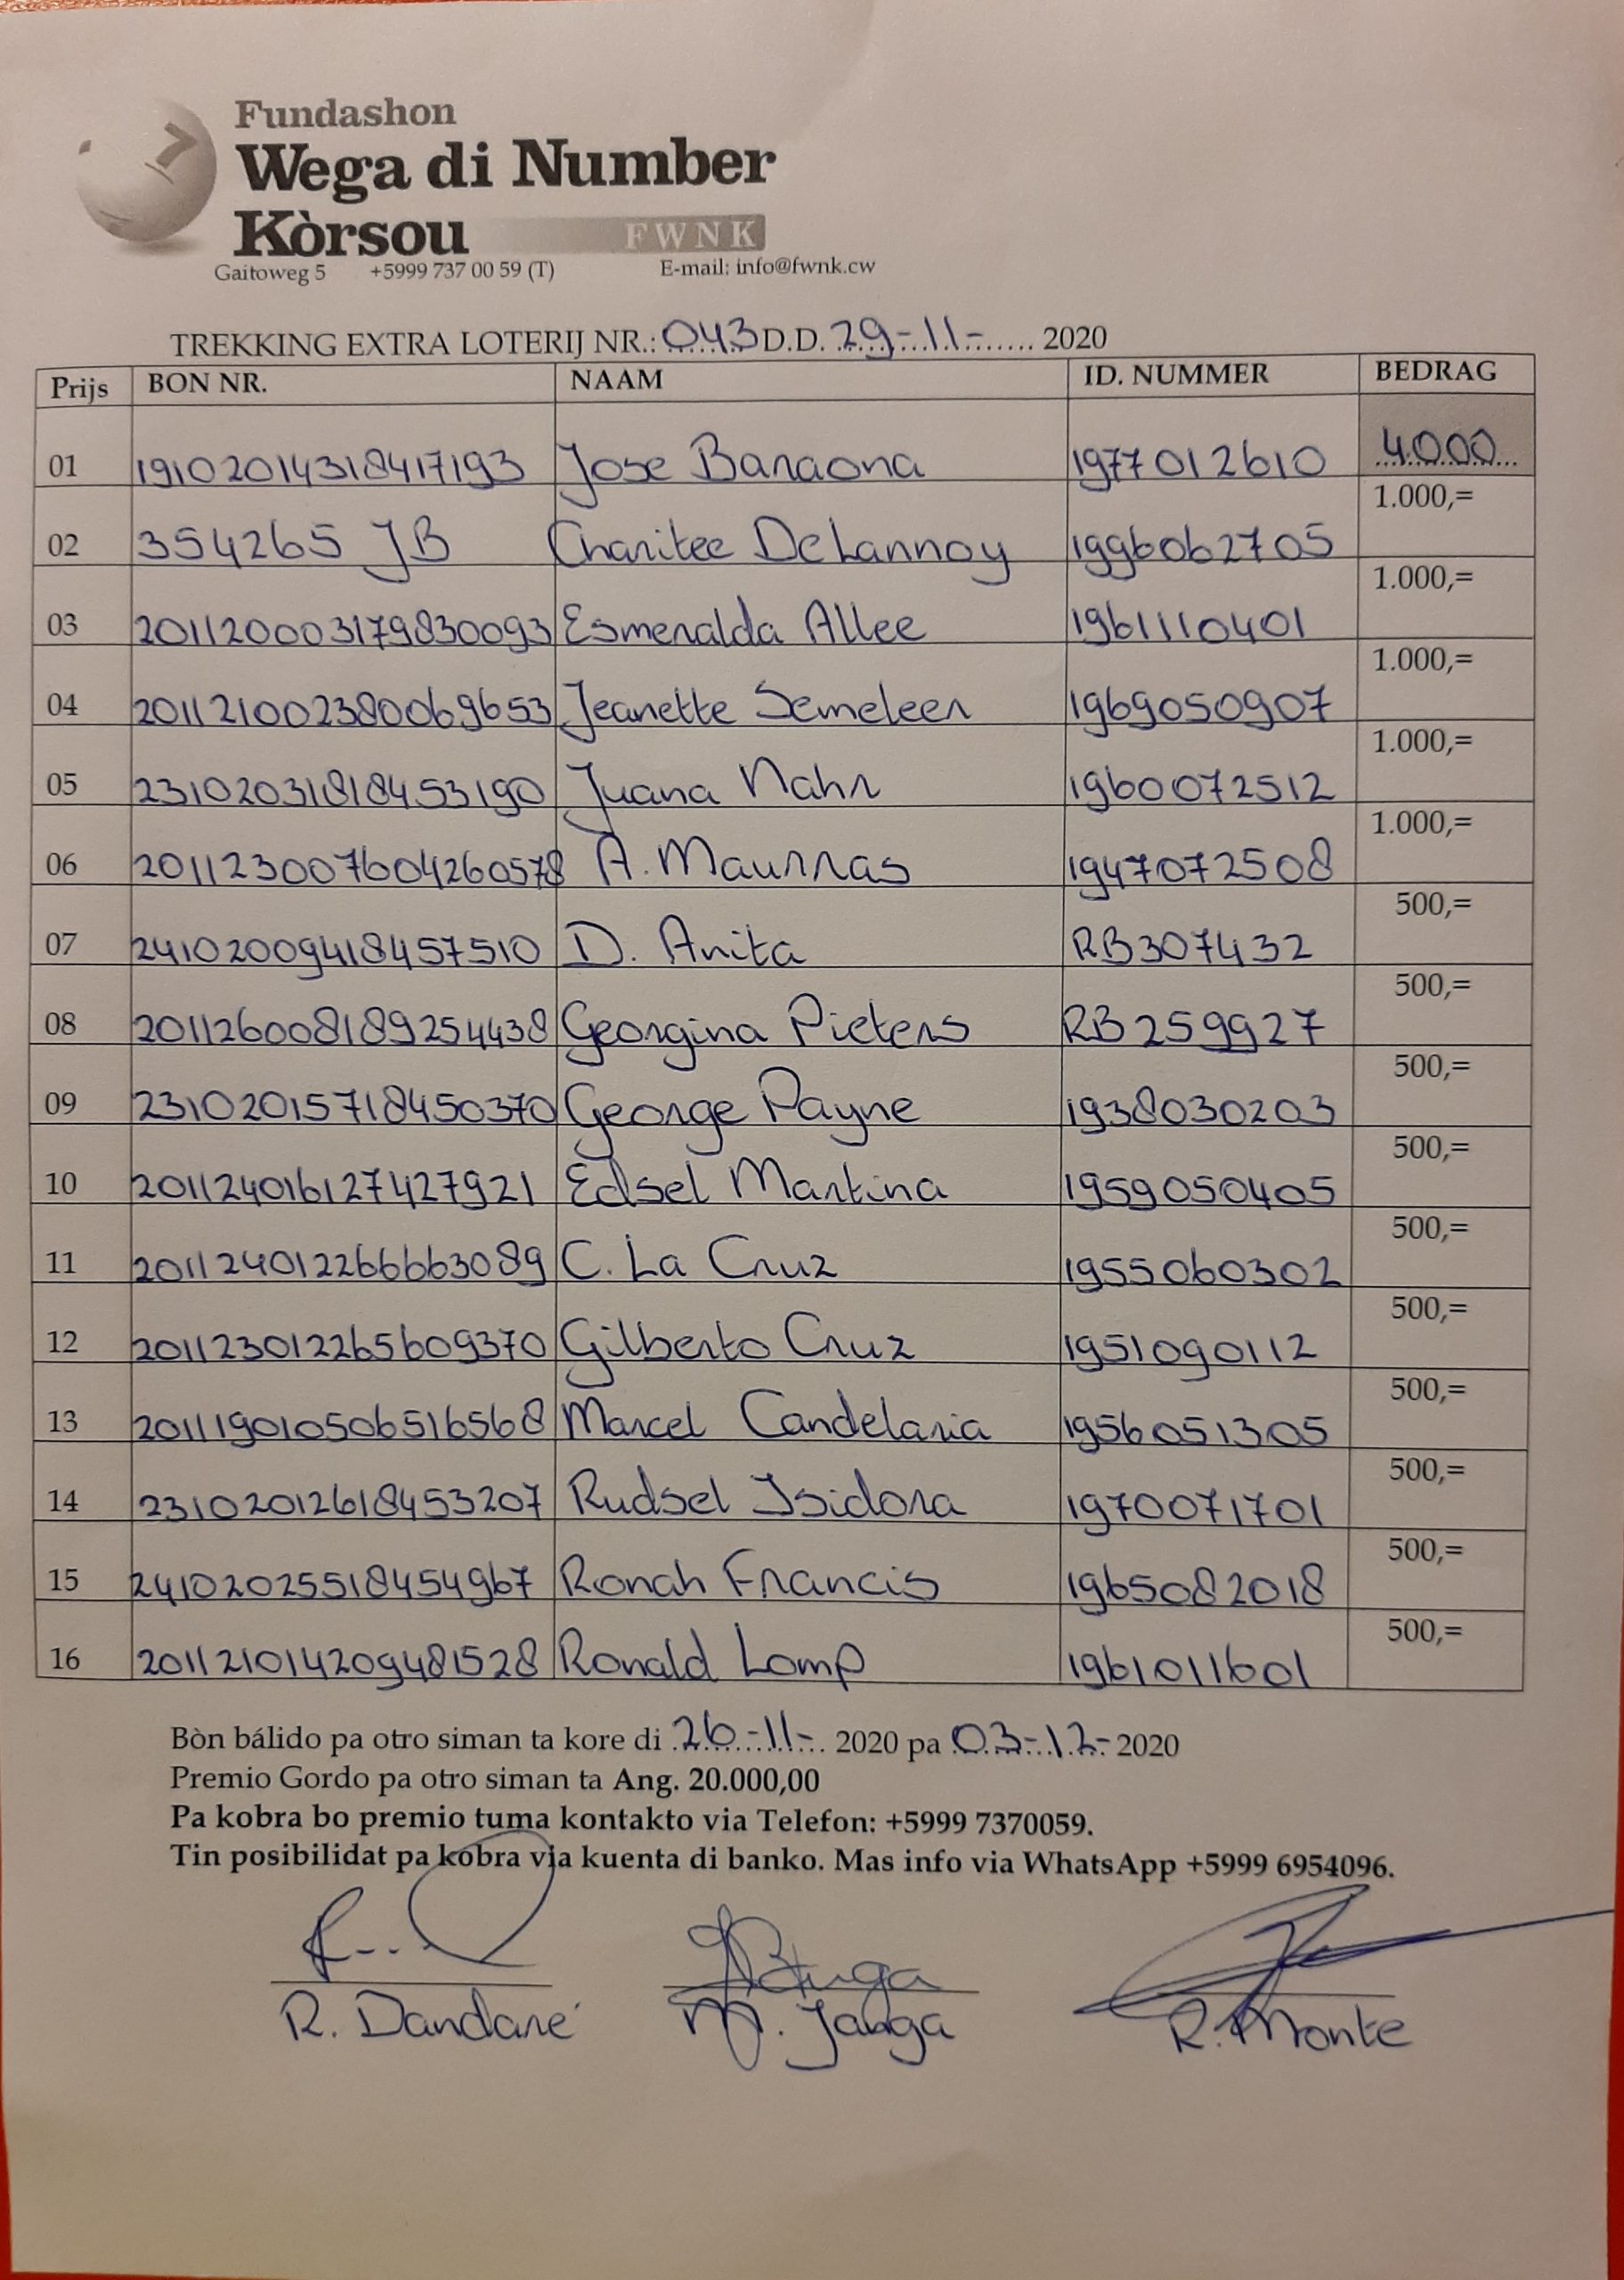 Fundashon
Wega di Number
Kòrsou FWNK
Gaitoweg 5 +5999 737 00 59 (T) E-mail: info@fwnk.cw
TREKKING EXTRA LOTERIJ NR.: 043 D.D. 29-11-...... 2020
Prijs BON NR. NAAM ID. NUMMER BEDRAG
01 191020143184171​93 Jose Baraona 1977012610 4.000
02 354265 JB Charitee DeLannoy 1996062705 1.000,=
03 2011200003179830093 Esmeralda Allee 1961110401 1.000,=
04 201121002380069653 Jeanette Semeleer 1969050907 1.000,=
05 23102031818453190 Juana Nahr 1960072512 1.000,=
06 201123007604260578 A. Maurras 1947072508 1.000,=
07 241020094184575​10 D. Anita RB307432 500,=
08 2011260081892544​38 Georgina Pieters RB259927 500,=
09 231020157184503​70 George Payne 1938030203 500,=
10 201124016127427921 Edsel Martina 1959050405 500,=
11 201124012266663089 C. La Cruz 1955060302 500,=
12 201123012265609370 Gilberto Cruz 1951090112 500,=
13 201119010506516568 Marcel Candelaria 1956051305 500,=
14 23102012618453207 Rudsel Isidora 1970071701 500,=
15 24102025518454967 Ronah Francis 1965082018 500,=
16 201121014209481528 Ronald Lomp 1961011601 500,=
Bòn bálido pa otro siman ta kore di 26-11-. 2020 pa 03-12- 2020
Premio Gordo pa otro siman ta Ang. 20.000,00
Pa kobra bo premio tuma kontakto via Telefon: +5999 7370059.
Tin posibilidat pa kobra via kuenta di banko. Mas info via WhatsApp +5999 6954096.
R. Dandaré M. Janga R. Monte